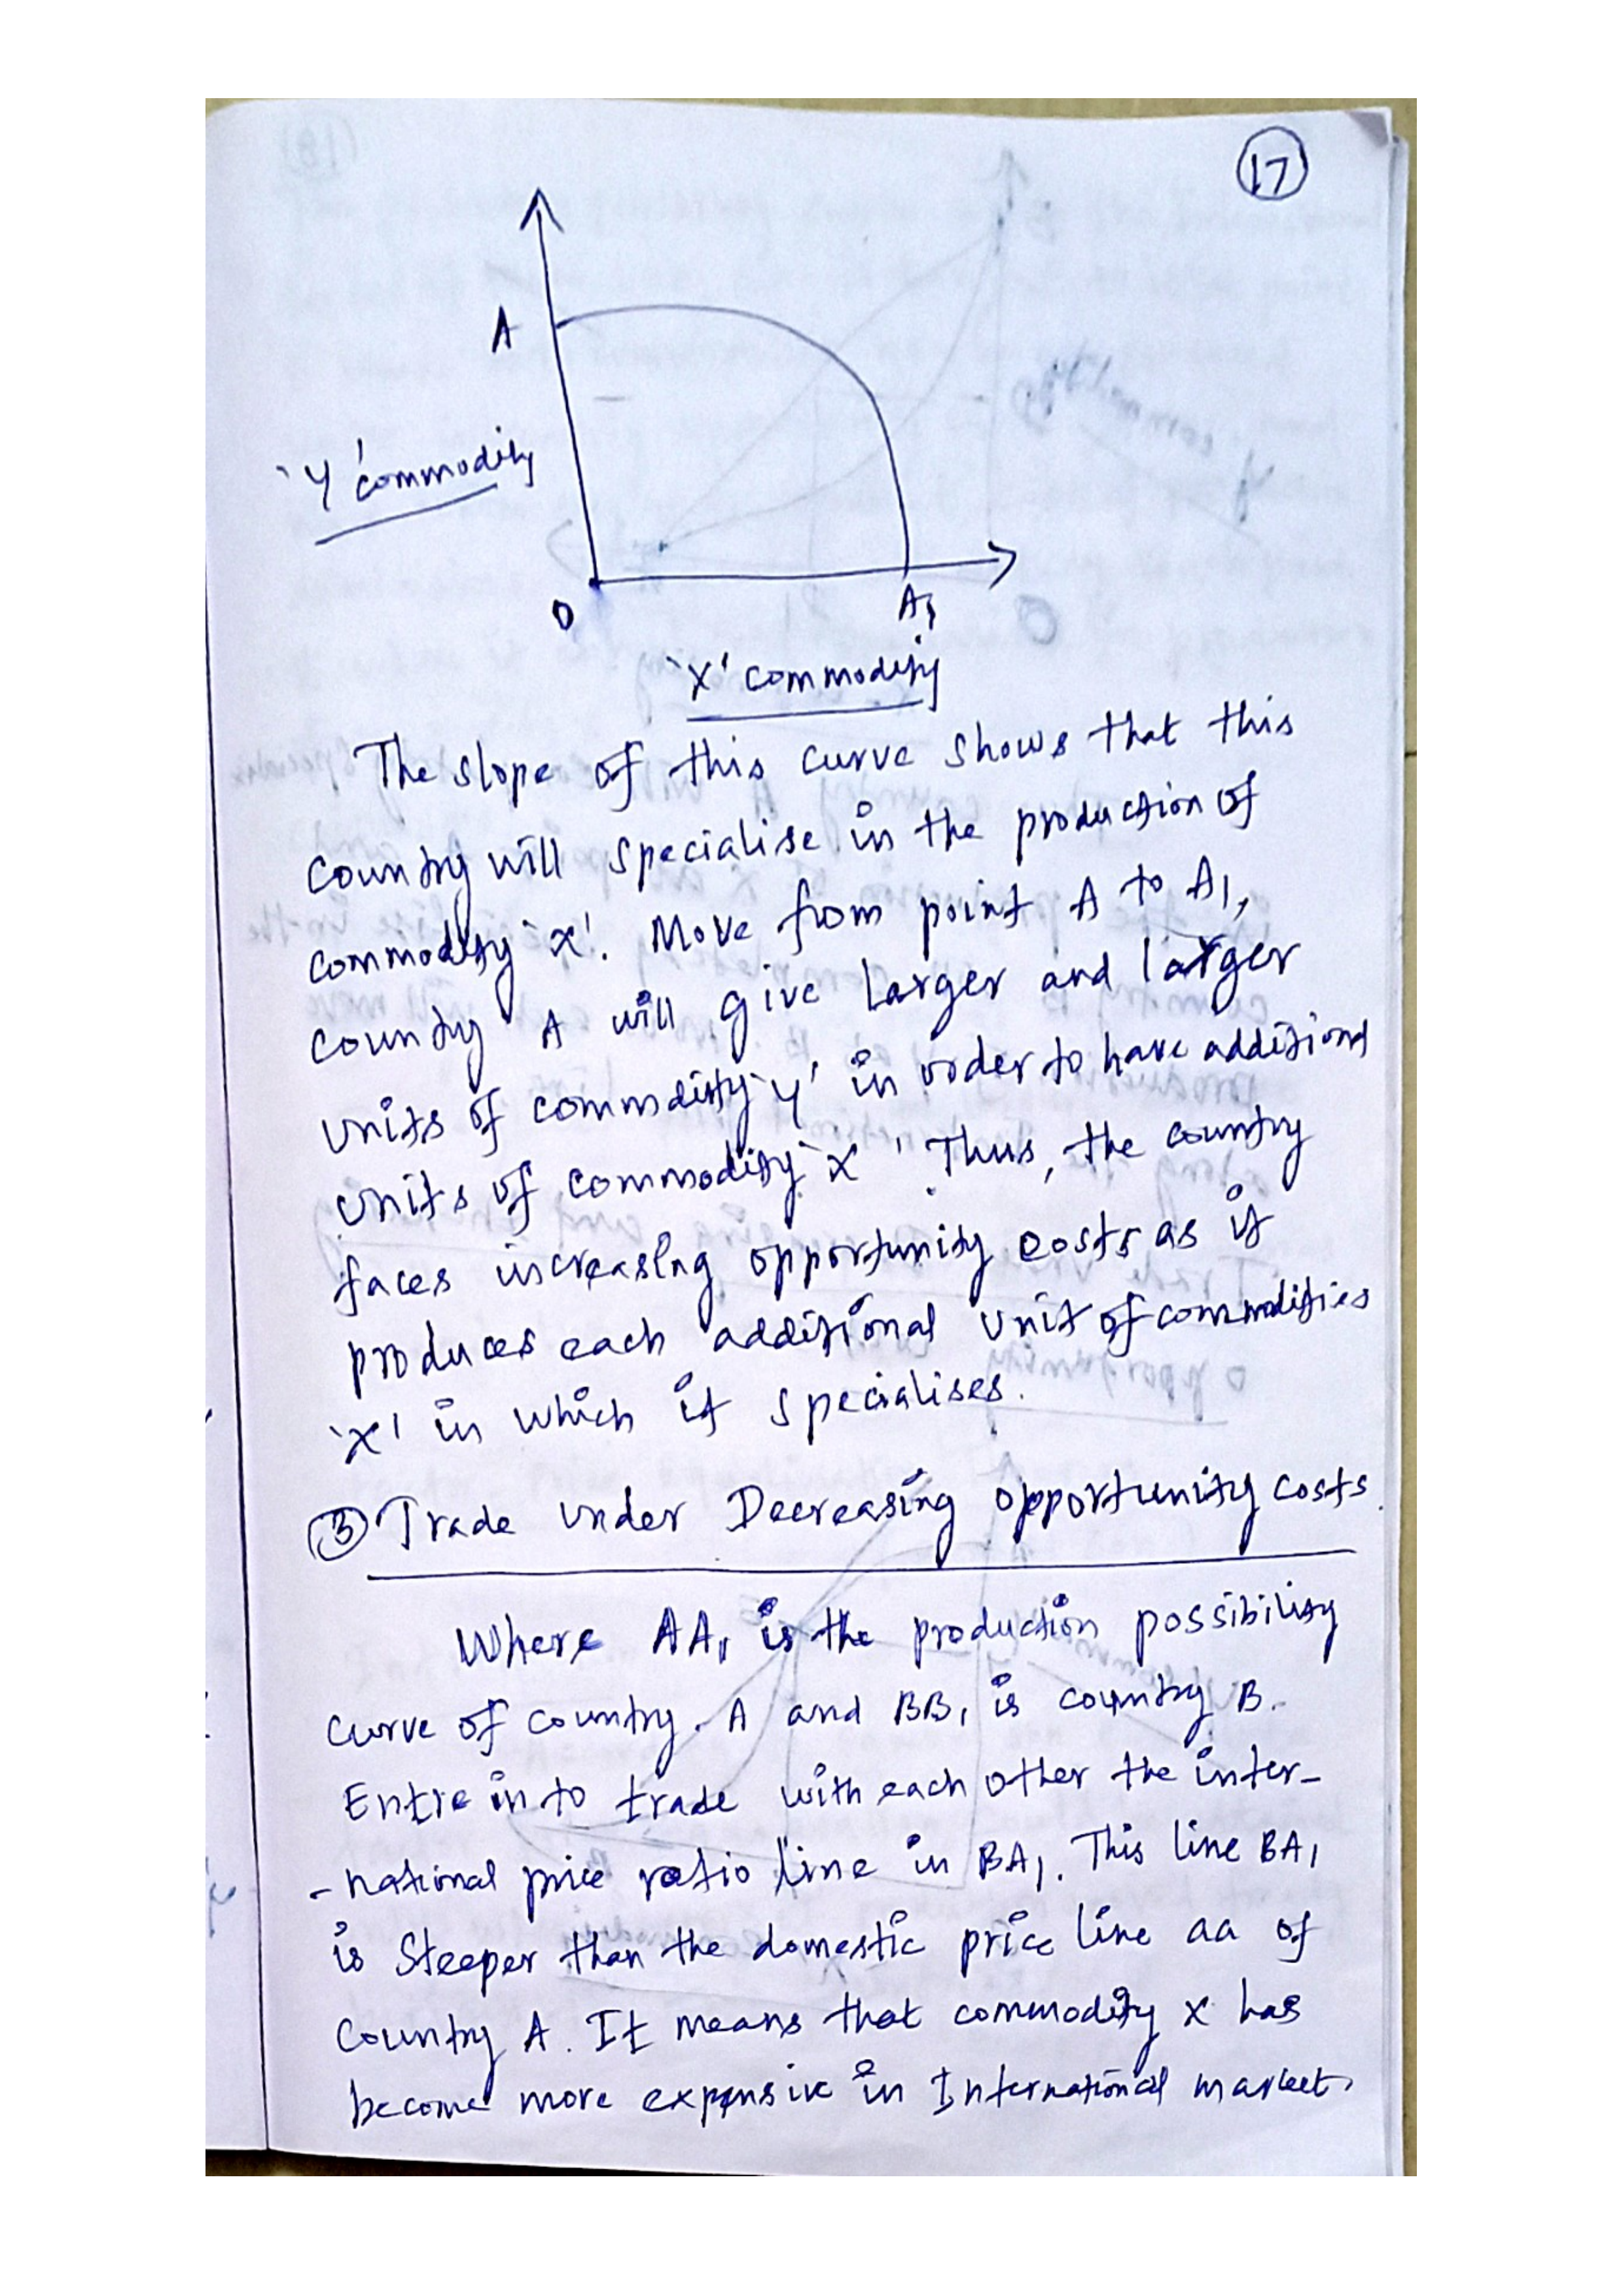 17
A
'Y' commodity
O
A1
'X' commodity
The slope of this curve shows that this
country will specialise in the production of
commodity 'x'. Move from point A to A1,
country A will give larger and larger
units of commodity 'y' in order to have additional
units of commodity 'x'. Thus, the country
faces increasing opportunity costs as it
produces each additional unit of commodities
'x' in which it specialises.
③ Trade under Decreasing opportunity costs.
Where AA1 is the production possibility
curve of country. A and BB1 is country B.
Entre in to trade with each other the inter-
-national price ratio line in BA1. This line BA1
is Steeper than the domestic price line aa of
country A. It means that commodity x has
become more expensive in International market.